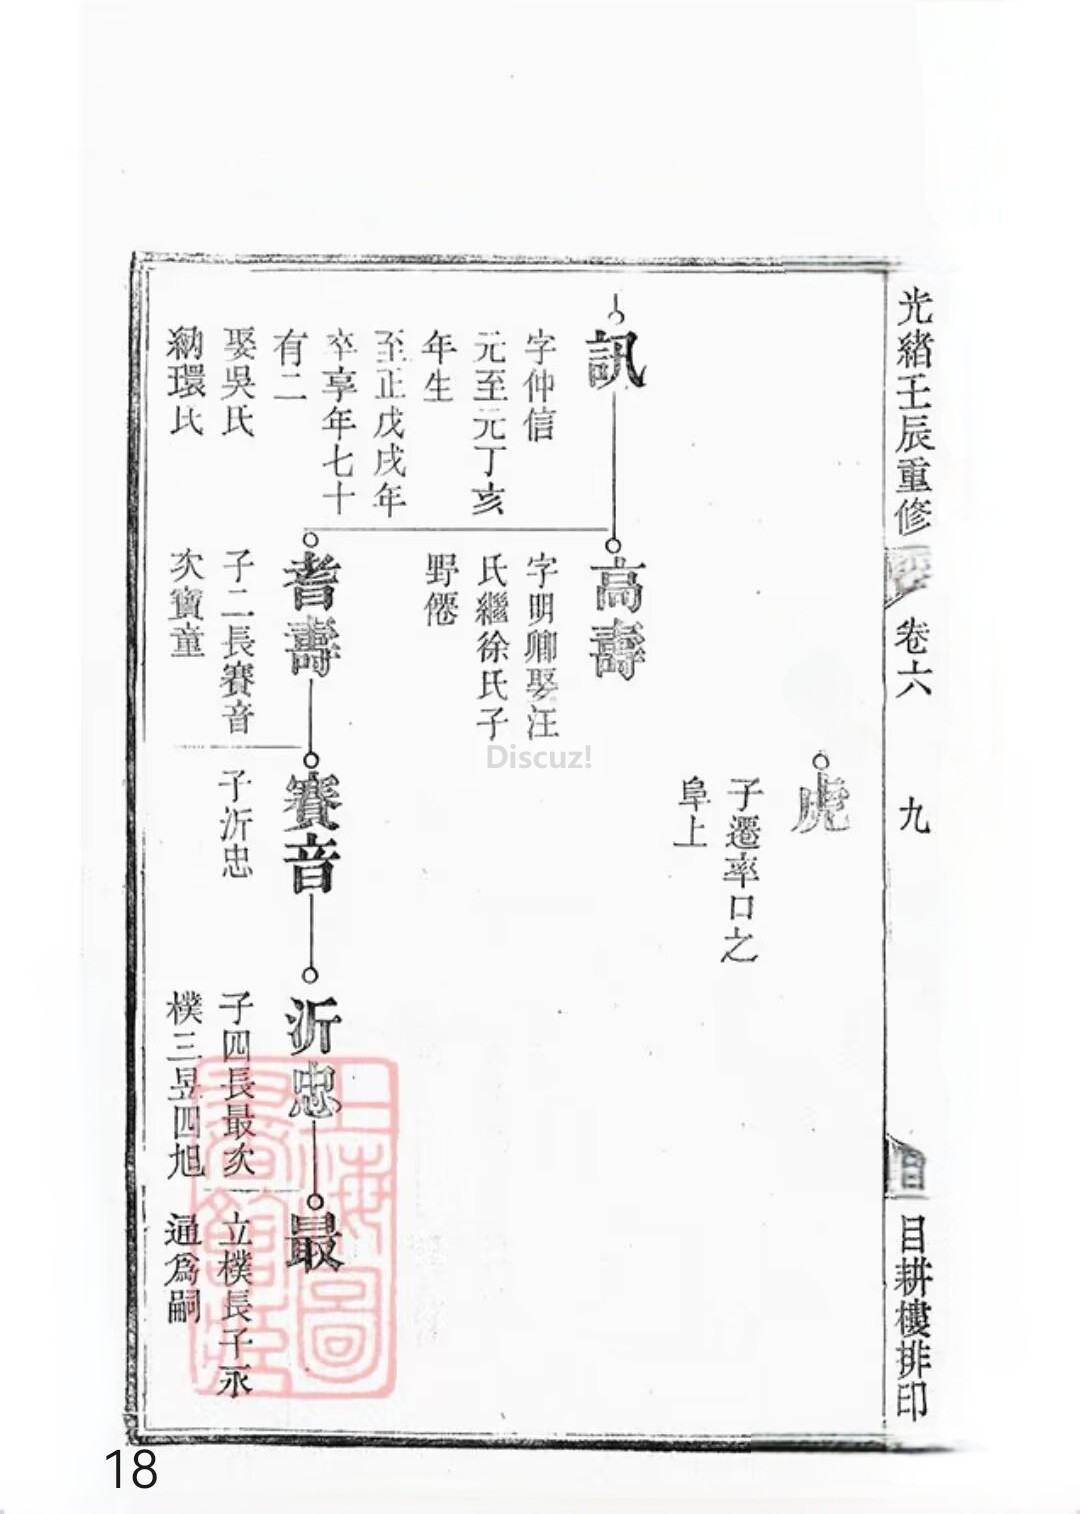 光緒壬辰重修
卷六
九
目耕樓排印
虎
子遷率口之
阜上
訊
字仲信
元至元丁亥
年生
至正戊戌年
卒享年七十
有二
娶吳氏
納環氏
高壽
字明卿娶汪
氏繼徐氏子
野僊
耆壽
子二長賽音
次寶童
賽音
子沂忠
沂忠
子四長最次
樸三昱四旭
最
立樸長子永
通爲嗣
上海圖
書館藏
Discuz!
18